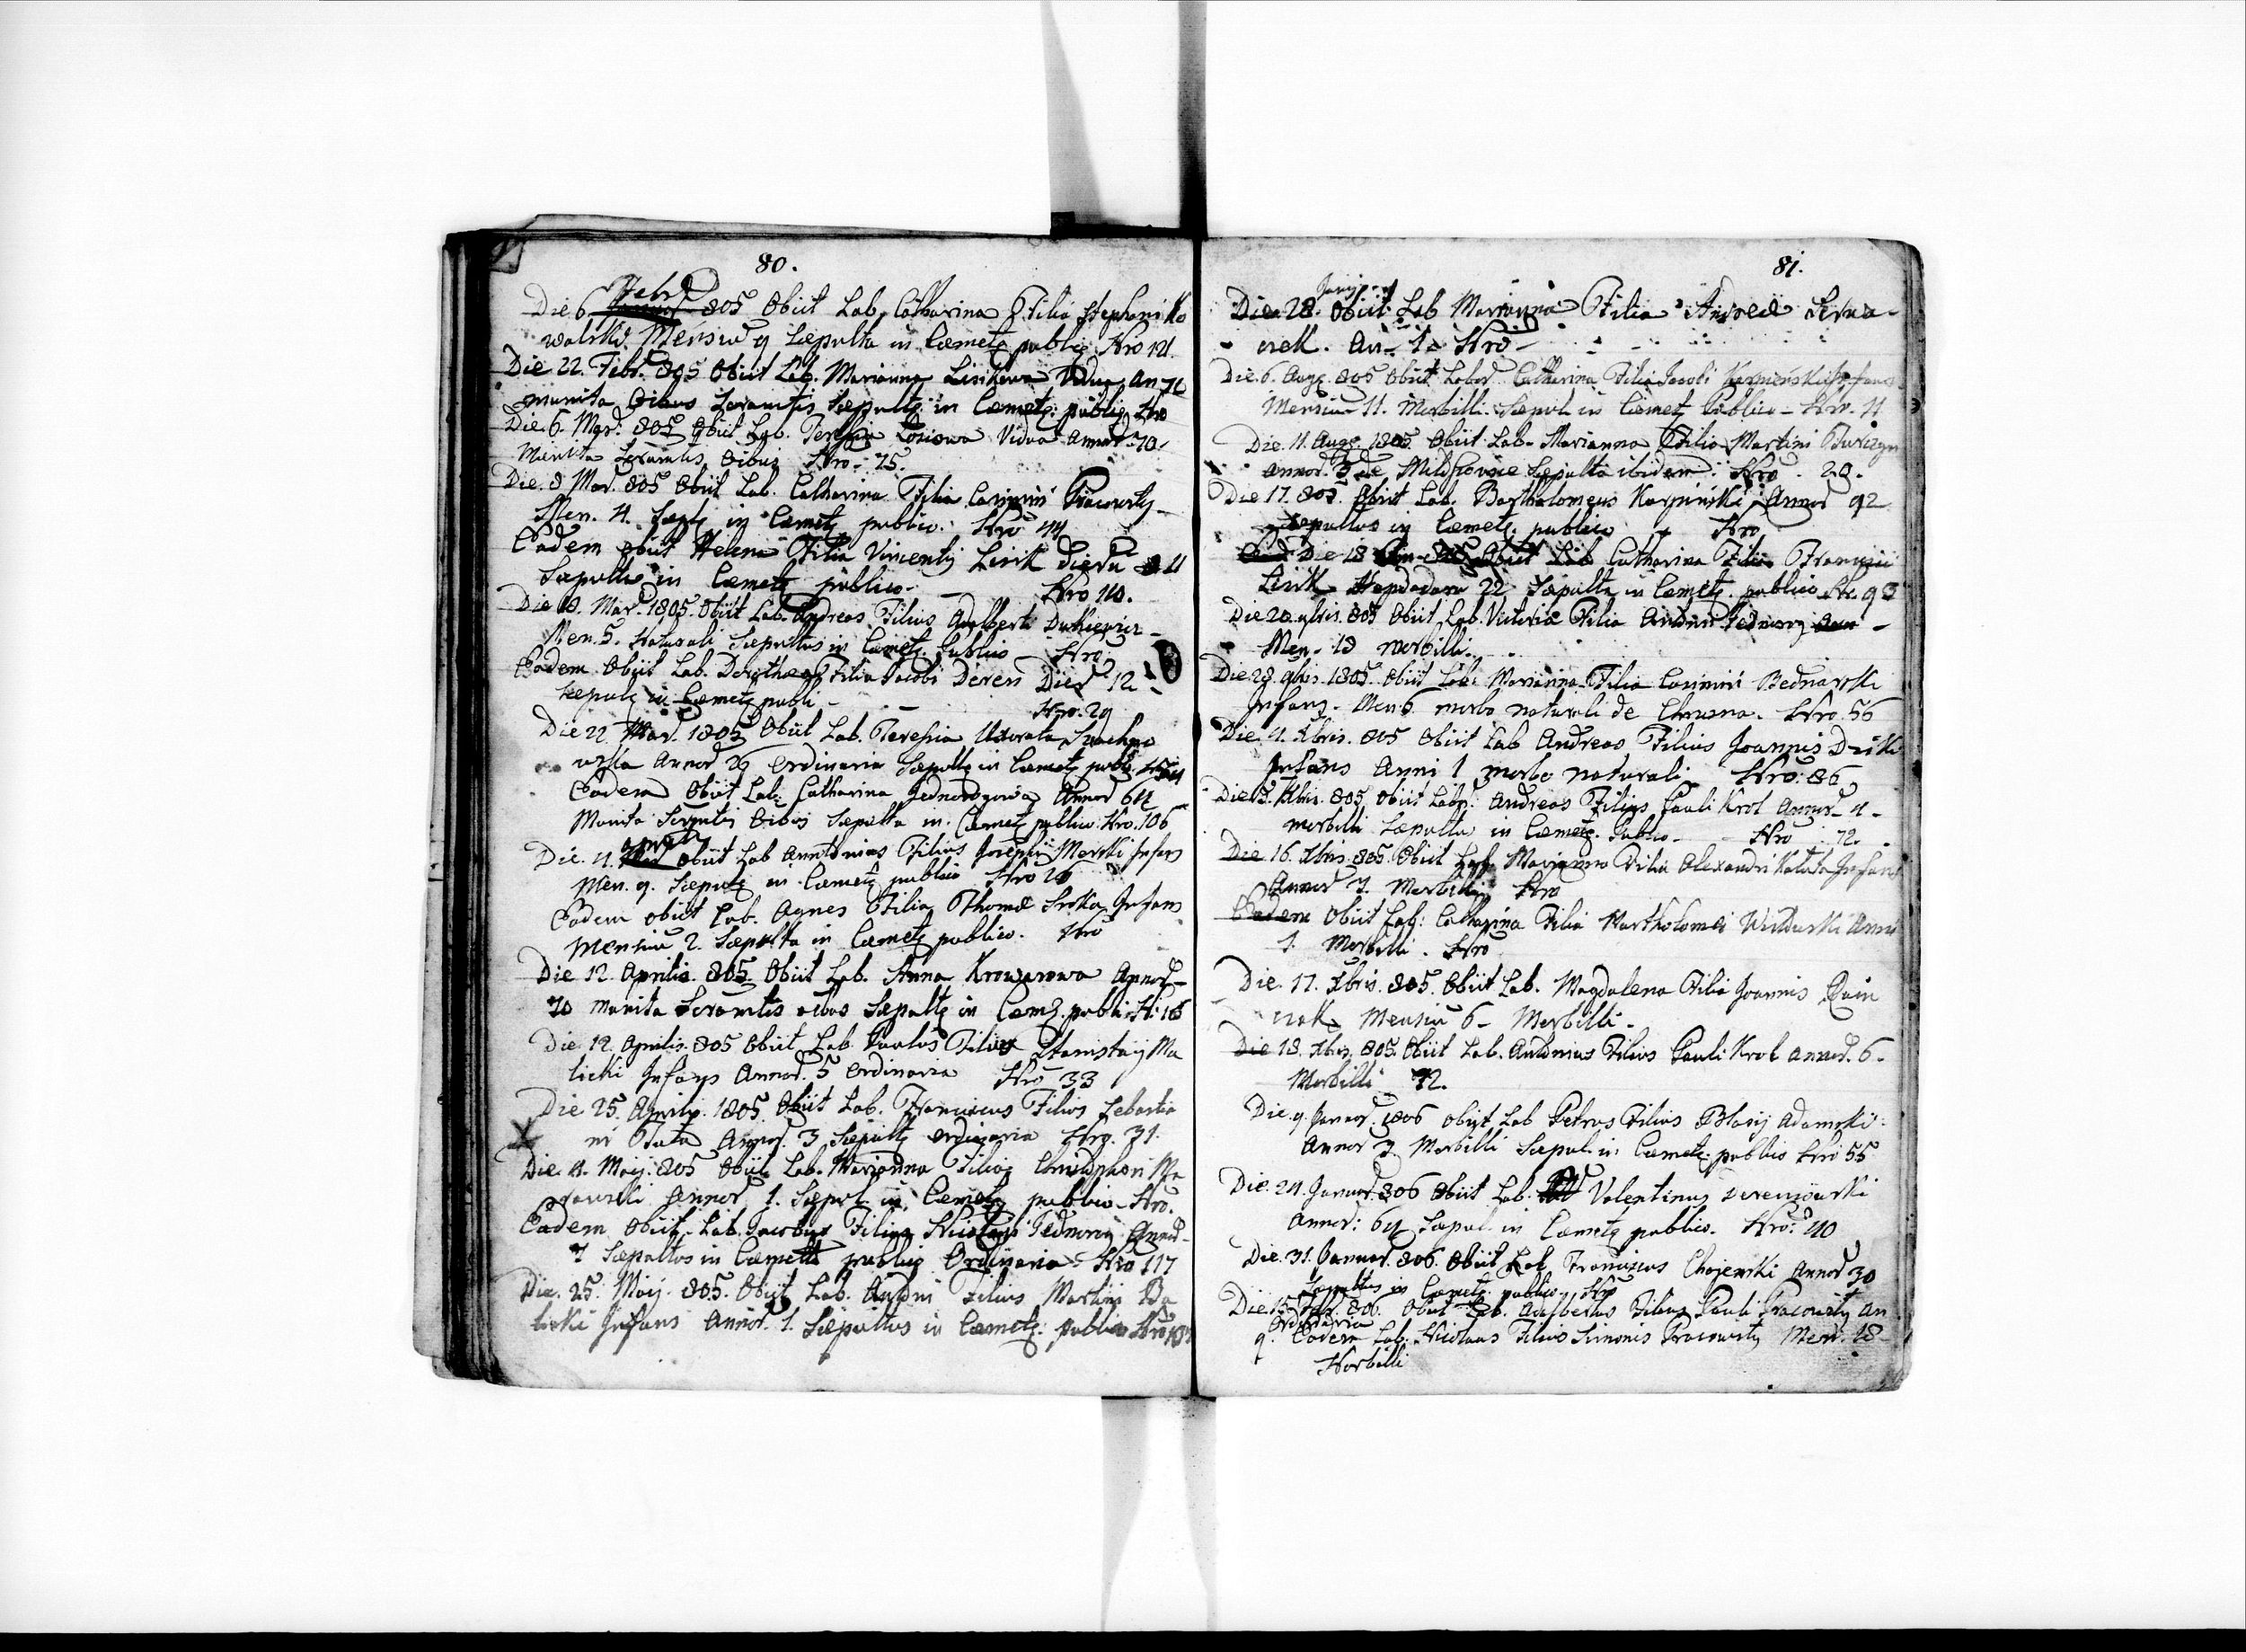 80.
Febr
Die 6 805 Obiit Lab. Catharina Filia Stephani Ko
walski Mensiu 9 Sæpulta in Cæmetz public Nro 121
Die 22. Febr. 805 Obiit Lab. Marianna Lisikowa Vidua, An
munita Oibus Scramtis Sæpultz in Cæmetz. public Nro
Die 6. Mar. 805 Obiit Lab. Teressia Vidua Annor. 70.
Munita Scramtis Oibus Nro. 75.
Die. 8 Mar. 805 Obiit Lab. Catharina Filia Casimiri Pracowity
Men. 4. Sæpz in Cæmetz publico. Nro 44
Eadem obiit Helena Filia Vincentij Lisik Dieru 11
Sæpulta in Cæmetz publico. Nro 110.
Die 18. Mar. 1805. Obiit Lab. Andreas Filius Adalberti Dutkiewicz
Men. 5. Naturali Sæpultus in Cæmetz. Publico Nro.
Eadem Obiit Lab. Dorothea Filia Jacobi Deren Dier 12
Sæpulz in Cæmetz publi - Nro. 29
Die 22 Mar. 1805 Obiit Lab. Teressia Uxorata
Annor 26 Ordinaria Sæpultz in Cæmetz publ.
Eadem Obiit Lab. Catharina Jednorogowa Annor 64
Munita Scramtis Oibus Sæpulta in Cæmetz publico Nro. 106
April
Die. 4. Obiit Lab Anntonius Filius Josephi Merski Infans
Men. 9. Sæpulz in Cæmetz publico Nro 26
Eadem obiit Lab. Agnes Filia Thomæ Sroka Infans
Mensiu 2. Sæpulta in Cæmetz publico. Nro
Die 12. Aprilis. 805 Obiit Lab. Anna Krowarowa Annor
70 munita Scramtis oibus Sæpultz in Cæmz. publi N. 16
Die 12. Aprilis. 805 Obiit Lab. Paulus Filius Stanislaij Ma
licki Infans Annor. 5 Ordinaria Nro 33
Die 25. Aprilis. 1805 Obiit Lab. Franciscus Filius Sebastia
ni Duda Annor. 3 Sæpultz ordinaria Nro. 31.
Die. 4. Maij. 805 Obiit Lab. Marianna Filia Christophori Ma
rowski Annor 1. Sæpul. in Cæmetz publico Nro.
Eadem Obiit Lab. Jacobus Filius Nicolai Jednorog Annor
7 Sæpultus in Cæmetz publico Ordinaria - Nro 117
Die. 25. Maij. 805. Obiit Lab. Antoni Filius Martini
licki Infans Annor. 1. Sæpultus in Cæmetz: publico Nro
81.
Junij
Die 28. Obiit Lab Marianna Filia Andreæ Serwa-
niek. An- 1 Nro -
Die. 6. Augz. 805 Obiit Labor. Catharina Filia Jacobi Karpinski Infans
Mensiu 11. Morbilli. Sæpul. in Cæmetz Publico - Nro. 11
Die. 11. Augz. 1805 Obiit Lab. Marianna Filia Martini
annor. 3 de Sæpulta ibidem. Nro. 20.
Die 17. 805. Obiit Lab. Bartholomeus Karpinski Annor 92
Sæpultus in Cæmetz. publico Nro
Die 18 805 Obiit Lab Catharina Filia Francisci
Lisik Hepdodara 22 Sæpulta in Cæmetz. publico Nr. 98
Die 20 9bris. 805 Obiit Lab. Victoria Filia Antoni Jednorog
Men. 18 morbilli.
Die. 28. 9bris. 1805. Obiit Lab: Marianna Filia Casimiri Bednarski
Infans. Men 6 morbo naturali de Chrusna. Nro. 56
Die. 4. Xbris. 805 Obiit Lab Andreas Filius Joannis Dziki
Infans Anni 1 morbo naturali Nro. 86
Die 13. Xbris. 805 Obiit Lab: Andreas Filius Pauli Krol Annor. 4 -
morbilli Sæpultus in Cæmetz. Publico - Nro 72.
Die 16. Xbris. 805. Obiit Lab. Marianna Filia Alexandri Kałata Infans
Annor 7. Morbilli Nro
Eadem Obiit Lab: Catharina Filia Bartholomei Anni
1. Morbilli. Nro
Die. 17. Xbris. 805. Obiit Lab. Magdalena Filia Joannis
niak Mensiu 6 - Morbilli -
Die 18. Xbris. 805. Obiit Lab. Antonius Filius Pauli Krol annor. 6 -
Morbilli 72.
Die. 9. Januar. 1806 obiit Lab Petrus Filius Blasij Adamski:
Annor 3 Morbilli Sæpul. in Cæmetz. publico Nro 55
Die. 24. Januar. 806 Obiit Lab. Valentinus
Annor: 64 Sæpul. in Cæmetz publico. Nro: 40
Die. 31. Januar. 806. Obiit Lab Franciscus Chojenski Annor 30
Sæpultus in Cæmetz. publico. Nro
Die. 15. Febr. 806. Obiit Lab. Adalbertus Filius Pauli Pracowity An
ordinaria
9. Eadem Lab. Nicolaus Filius Simonis Pracowity Men. 18
Morbilli